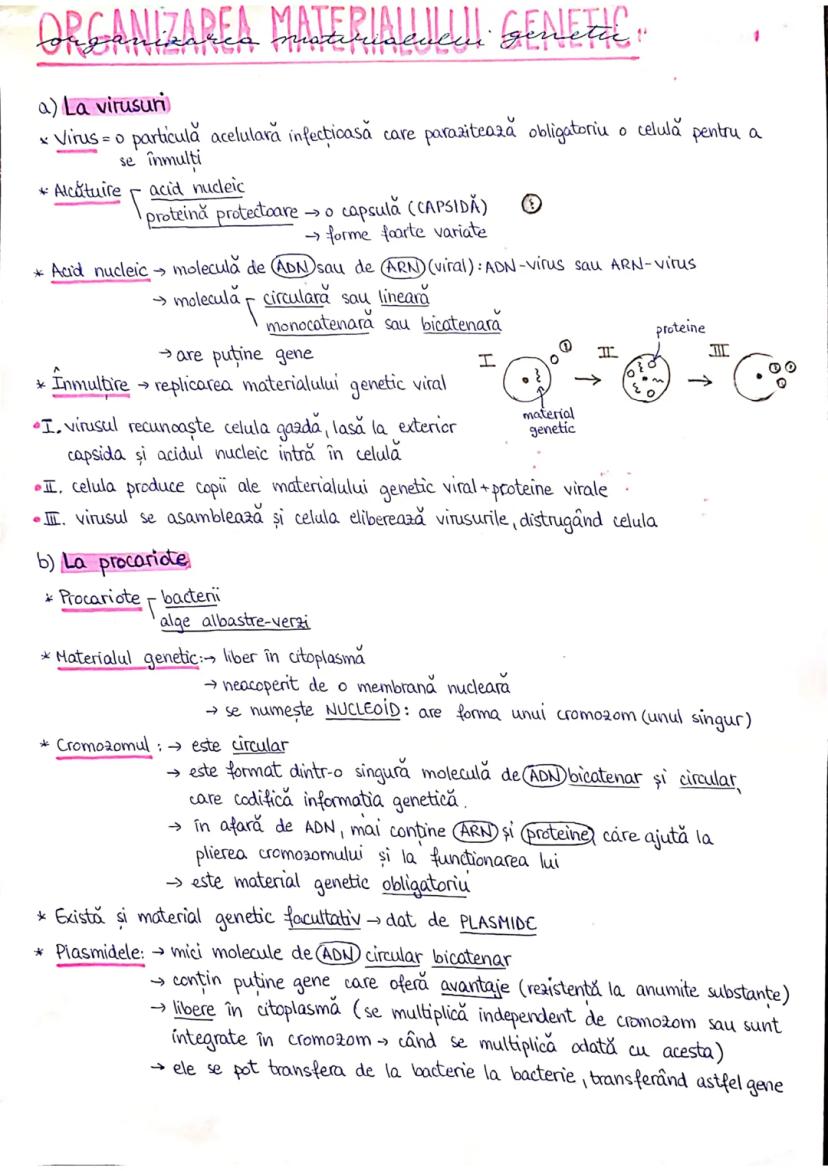 ORGANIZAREA MATERIALULUI GENETIC
organizarea materialului genetic
1
a) La virusuri
* Virus = o particulă acelulară infecțioasă care parazitează obligatoriu o celulă pentru a
se înmulți
* Alcătuire acid nucleic
proteină protectoare → o capsulă (CAPSIDĂ)
→ forme foarte variate
* Acid nucleic → moleculă de ADN sau de ARN (viral) : ADN-virus sau ARN-virus
→ moleculă circulară sau lineară
monocatenară sau bicatenară
→ are puține gene
* Înmulțire → replicarea materialului genetic viral
I II proteine III
material
genetic
• I. virusul recunoaște celula gazdă, lasă la exterior
capsida și acidul nucleic intră în celulă
• II. celula produce copii ale materialului genetic viral + proteine virale
• III. virusul se asamblează și celula eliberează virusurile, distrugând celula
b) La procariote
* Procariote bacterii
alge albastre-verzi
* Materialul genetic: → liber în citoplasmă
→ neacoperit de o membrană nucleară
→ se numește NUCLEOID: are forma unui cromozom (unul singur)
* Cromozomul : → este circular
→ este format dintr-o singură moleculă de ADN bicatenar și circular,
care codifică informația genetică.
→ în afară de ADN, mai conține ARN și proteine care ajută la
plierea cromozomului și la funcționarea lui
→ este material genetic obligatoriu
* Există și material genetic facultativ → dat de PLASMIDE
* Plasmidele: → mici molecule de ADN circular bicatenar
→ conțin puține gene care oferă avantaje (rezistență la anumite substanțe)
→ libere în citoplasmă (se multiplică independent de cromozom sau sunt
integrate în cromozom → când se multiplică odată cu acesta)
→ ele se pot transfera de la bacterie la bacterie, transferând astfel gene